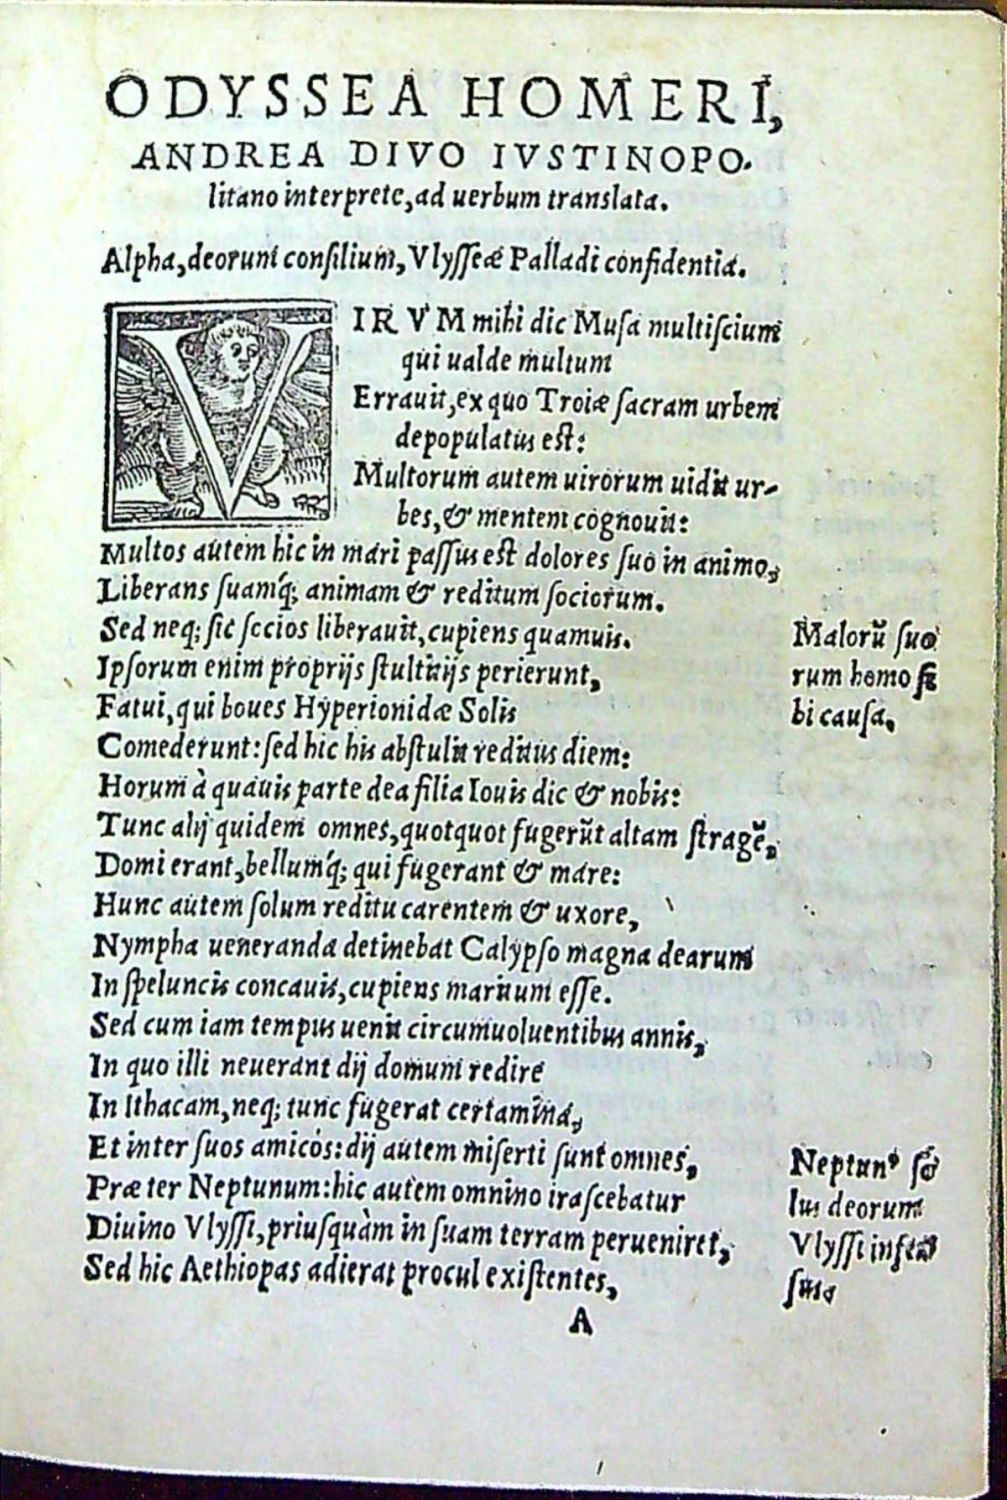 ODYSSEA HOMERI,
ANDREA DIVO IVSTINOPO-
litano interprete, ad uerbum translata.
Alpha, deorum consilium, Vlysseæ Palladi confidentia.
VIRVM mihi dic Musa multiscium
qui ualde multum
Errauit, ex quo Troiæ sacram urbem
depopulatus est:
Multorum autem uirorum uidit ur-
bes, & mentem cognouit:
Multos autem hic in mari passus est dolores suo in animo,
Liberans suamq́; animam & reditum sociorum.
Sed neq; sic socios liberauit, cupiens quamuis.
Ipsorum enim proprijs stultitijs perierunt,
Fatui, qui boues Hyperionidæ Solis
Comederunt: sed hic his abstulit reditus diem:
Horum à quauis parte dea filia Iouis dic & nobis:
Tunc alij quidem omnes, quotquot fugerũt altam stragẽ,
Domi erant, bellumq́; qui fugerant & mare:
Hunc autem solum reditu carentem & uxore,
Nympha ueneranda detinebat Calypso magna dearum
In speluncis concauis, cupiens maritum esse.
Sed cum iam tempus uenit circumuoluentibus annis,
In quo illi neuerant dij domum redire
In Ithacam, neq; tunc fugerat certamina,
Et inter suos amicos: dij autem miserti sunt omnes,
Præter Neptunum: hic autem omnino irascebatur
Diuino Vlyssi, priusquàm in suam terram perueniret,
Sed hic Aethiopas adierat procul existentes,
A
Malorũ suo
rum homo si
bi causa.
Neptunꝰ so
lus deorum
Vlyssi infen
sus